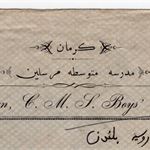 کرمان
مدرسه متوسطه مرسلین
n, C. M. S. Boys'